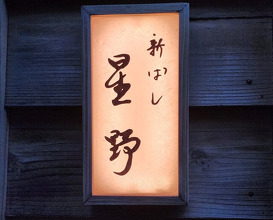 新ばし
星野